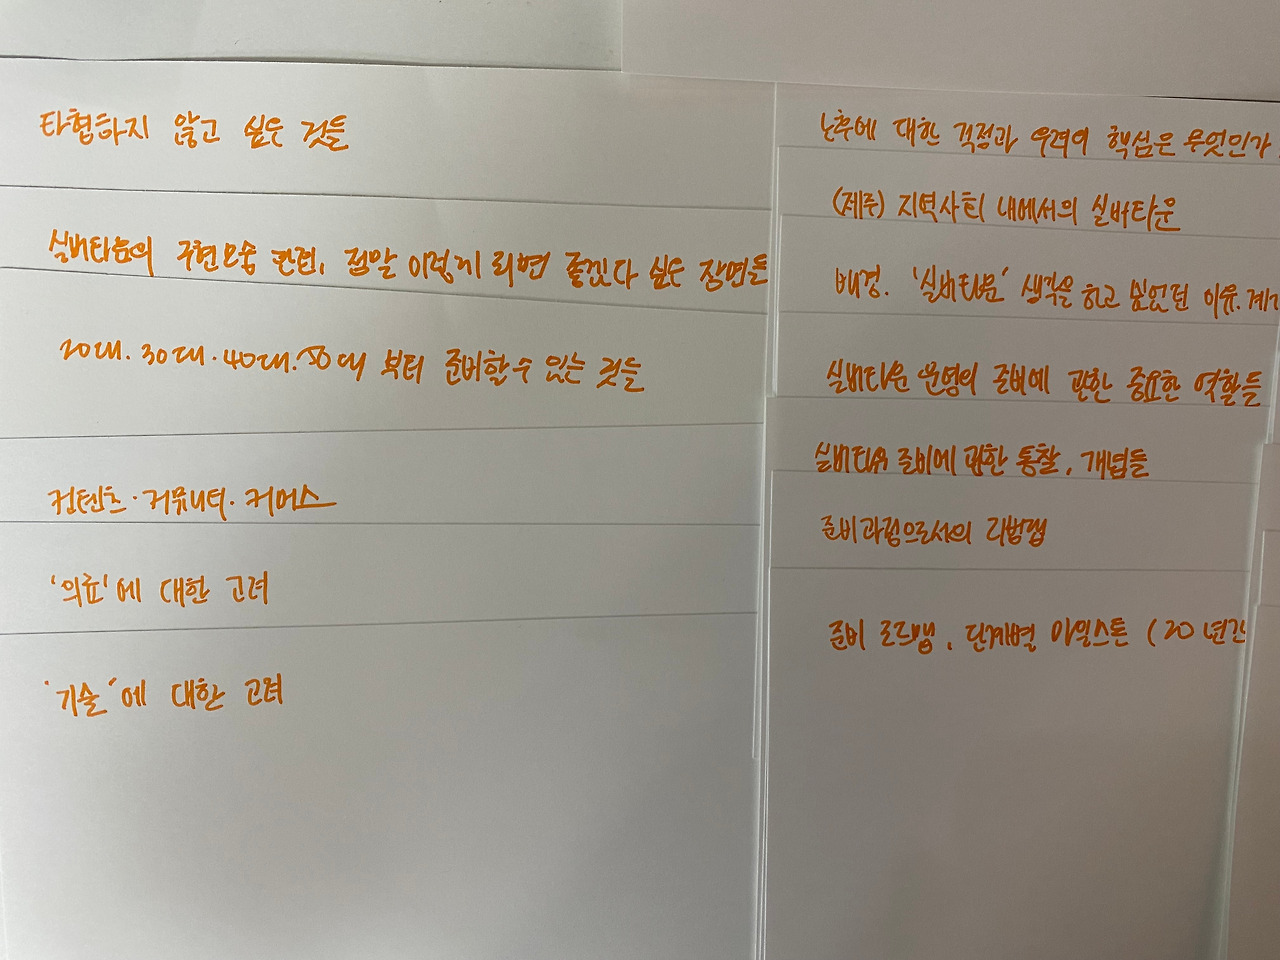 타협하지 않고 싶은 것들
실버타운의 구현모습 관련, 정말 이렇게 되면 좋겠다 싶은 장면들
20대. 30대. 40대. 50대 부터 준비할 수 있는 것들
컨텐츠 · 커뮤니티 · 커머스
'의료'에 대한 고려
'기술'에 대한 고려
노후에 대한 걱정과 우려의 핵심은 무엇인가
(제주) 지역사회 내에서의 실버타운
배경. '실버타운' 생각을 하고 있었던 이유.
실버타운 운영의 준비에 관한 중요한 역할들
실버타운 준비에 관한 통찰, 개념들
준비과정으로서의 리빙랩
준비 로드맵, 단계별 마일스톤 (20년간